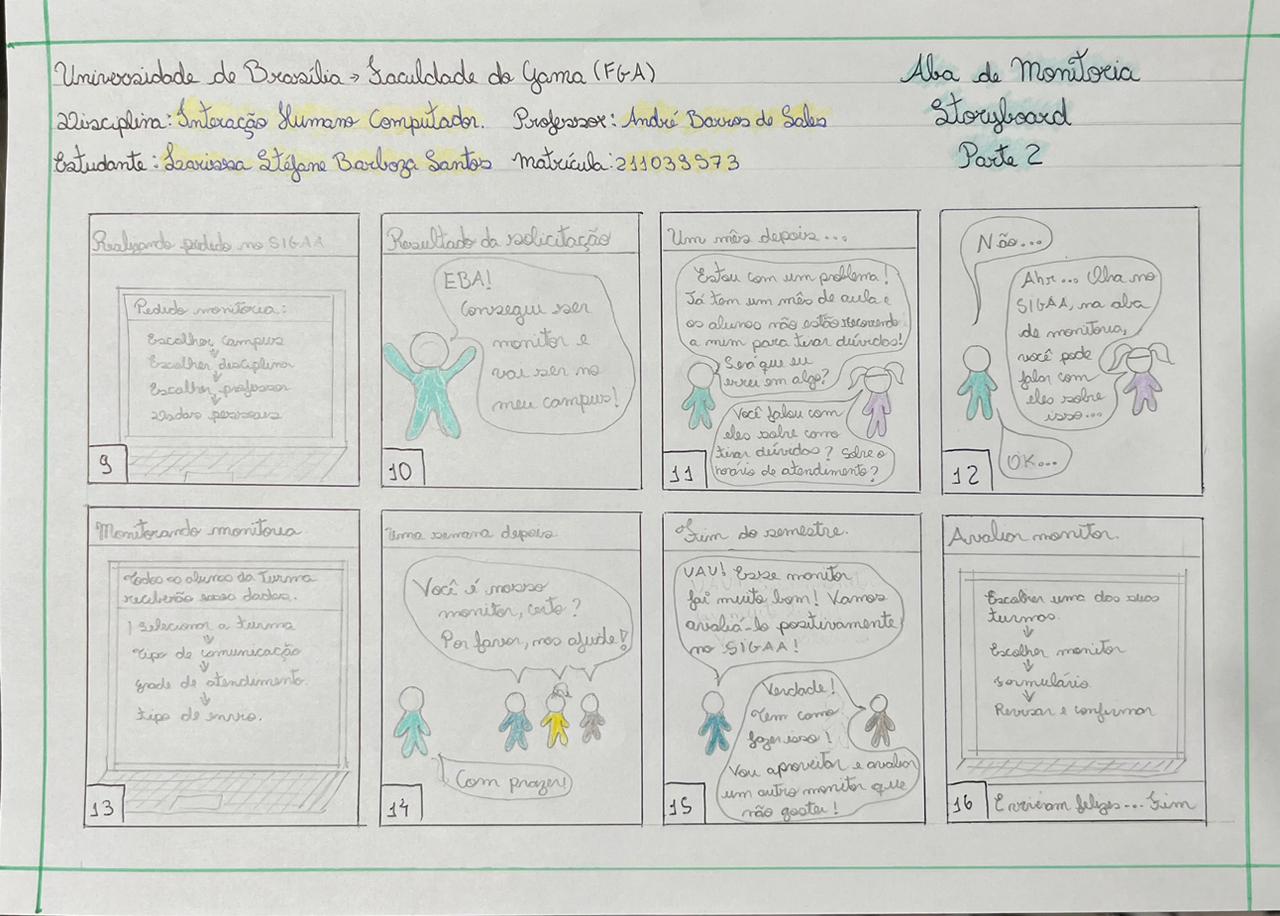 Universidade de Brasília → Faculdade do Gama (FGA)
Aba de Monitoria
Disciplina: Interação Humano Computador. Professor: André Barros de Sales
Storyboard
Estudante: Larissa Stéfane Barboza Santos Matrícula: 211039573
Parte 2
Realizando pedido no SIGAA
Pedido monitoria:
Escolher campus
Escolher disciplina
Escolher professor
Dados pessoais
9
Resultado da solicitação
EBA!
Consegui ser
monitor e
vai ser no
meu campus!
10
Um mês depois...
Estou com um problema!
Já tem um mês de aula e
os alunos não estão recorrendo
a mim para tirar dúvidas!
Será que eu
errei em algo?
Você falou com
eles sobre como
tirar dúvidas? Sobre o
horário de atendimento?
11
Não...
Ahr... Olha no
SIGAA, na aba
de monitoria,
você pode
falar com
eles sobre
isso...
OK...
12
Monitorando monitoria
Todos os alunos da turma
receberão esses dados.
Selecionar a turma
Tipo de comunicação
grade de atendimento.
tipo de envio.
13
Uma semana depois
Você é nosso
monitor, certo?
Por favor, nos ajude!
Com prazer!
14
Fim do semestre.
UAU! Esse monitor
foi muito bom! Vamos
avaliá-lo positivamente
no SIGAA!
Verdade!
Tem como
fazer isso!
Vou aproveitar e avaliar
um outro monitor que
não gostei!
15
Avaliar monitor.
Escolher uma das suas
turmas.
Escolher monitor
formulário
Revisar e confirmar
16
E viveram felizes... Fim